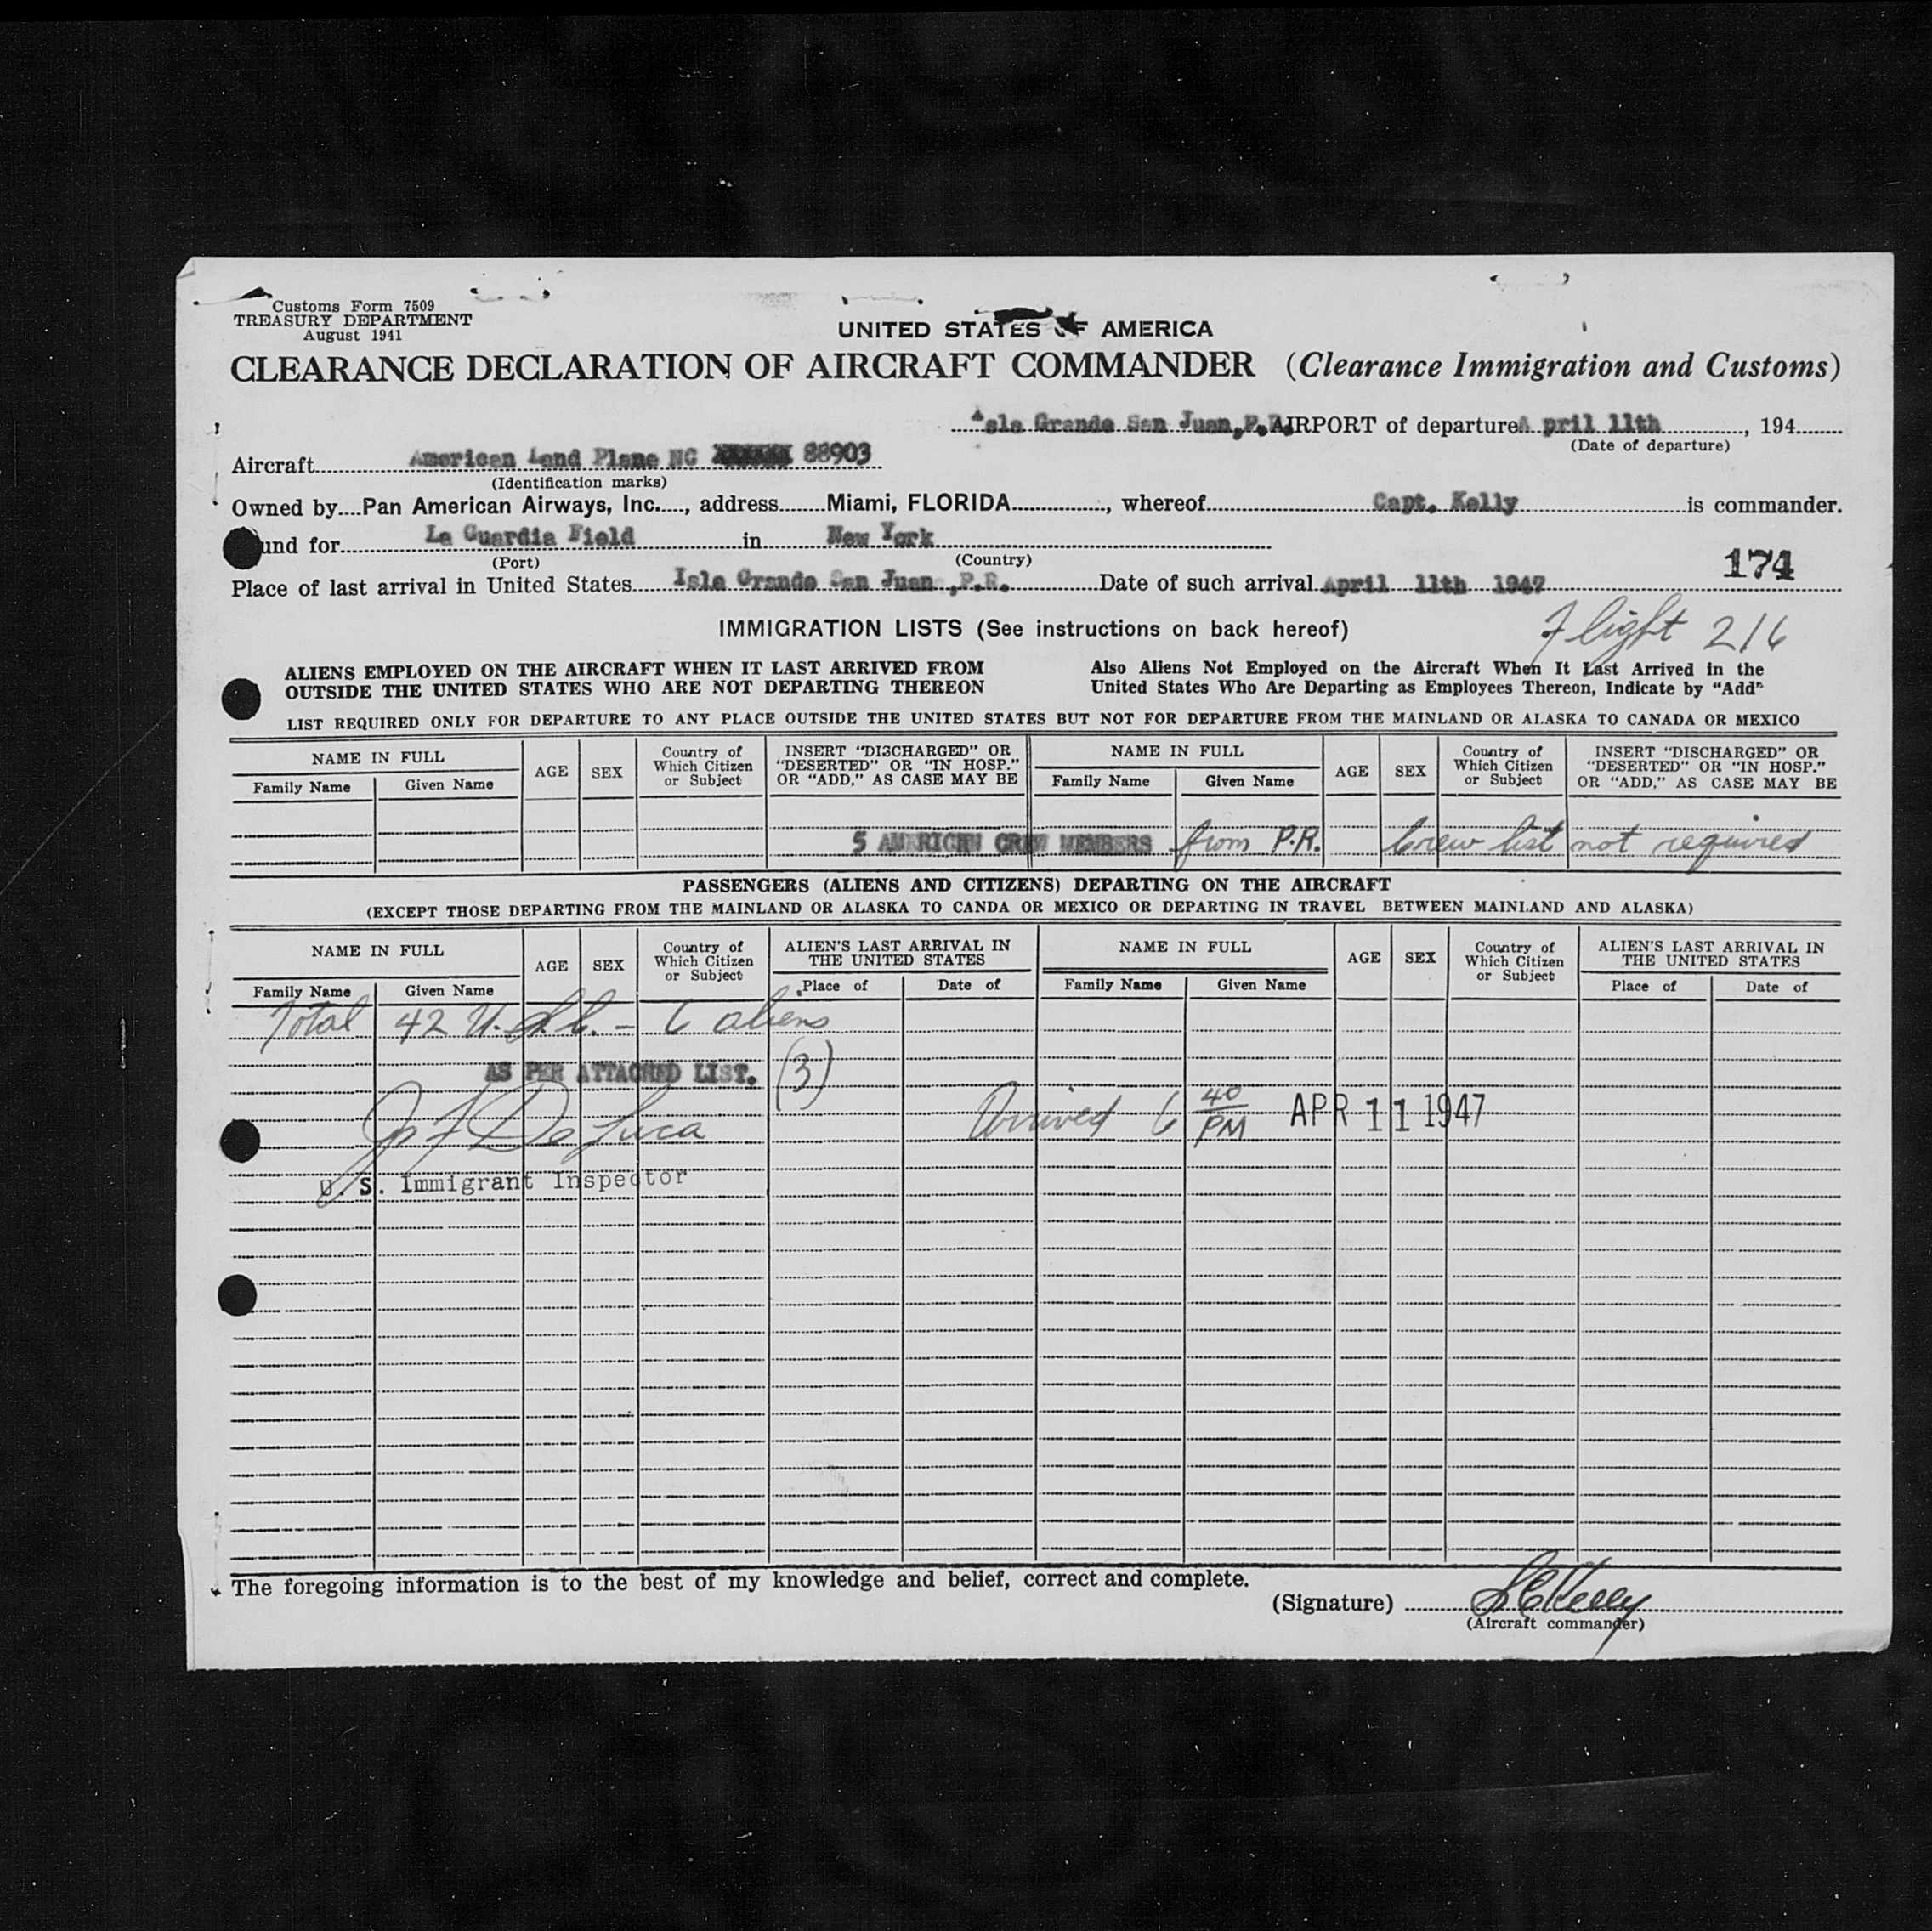 Customs Form 7509
TREASURY DEPARTMENT
August 1941
UNITED STATES OF AMERICA
CLEARANCE DECLARATION OF AIRCRAFT COMMANDER (Clearance Immigration and Customs)
Isla Grande San Juan, P.R. AIRPORT of departure April 11th, 194
(Date of departure)
Aircraft American Land Plane NC 88903
(Identification marks)
Owned by Pan American Airways, Inc., address Miami, FLORIDA, whereof Capt. Kelly is commander.
und for La Guardia Field in New York
(Port) (Country)
174
Place of last arrival in United States Isla Grande San Juan, P.R. Date of such arrival April 11th 1947
IMMIGRATION LISTS (See instructions on back hereof) Flight 216
ALIENS EMPLOYED ON THE AIRCRAFT WHEN IT LAST ARRIVED FROM
OUTSIDE THE UNITED STATES WHO ARE NOT DEPARTING THEREON
Also Aliens Not Employed on the Aircraft When It Last Arrived in the
United States Who Are Departing as Employees Thereon, Indicate by “Add”
LIST REQUIRED ONLY FOR DEPARTURE TO ANY PLACE OUTSIDE THE UNITED STATES BUT NOT FOR DEPARTURE FROM THE MAINLAND OR ALASKA TO CANADA OR MEXICO
NAME IN FULL
Family Name Given Name
AGE
SEX
Country of
Which Citizen
or Subject
INSERT “DISCHARGED” OR
“DESERTED” OR “IN HOSP.”
OR “ADD,” AS CASE MAY BE
NAME IN FULL
Family Name Given Name
AGE
SEX
Country of
Which Citizen
or Subject
INSERT “DISCHARGED” OR
“DESERTED” OR “IN HOSP.”
OR “ADD,” AS CASE MAY BE
5 AMERICAN CREW MEMBERS from P.R. Crew list not required
PASSENGERS (ALIENS AND CITIZENS) DEPARTING ON THE AIRCRAFT
(EXCEPT THOSE DEPARTING FROM THE MAINLAND OR ALASKA TO CANDA OR MEXICO OR DEPARTING IN TRAVEL BETWEEN MAINLAND AND ALASKA)
NAME IN FULL
Family Name Given Name
AGE
SEX
Country of
Which Citizen
or Subject
ALIEN’S LAST ARRIVAL IN
THE UNITED STATES
Place of Date of
NAME IN FULL
Family Name Given Name
AGE
SEX
Country of
Which Citizen
or Subject
ALIEN’S LAST ARRIVAL IN
THE UNITED STATES
Place of Date of
Total 42 U.S.C. - 6 aliens
AS PER ATTACHED LIST. (3)
De Luca
Arrived 6 40/PM APR 11 1947
U. S. Immigrant Inspector
The foregoing information is to the best of my knowledge and belief, correct and complete.
(Signature) Kelly
(Aircraft commander)